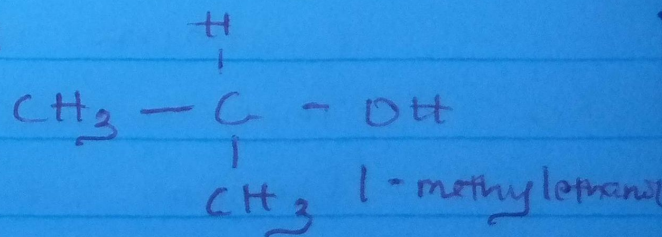 H
CH3 - C - OH
CH3 1-methylethanol